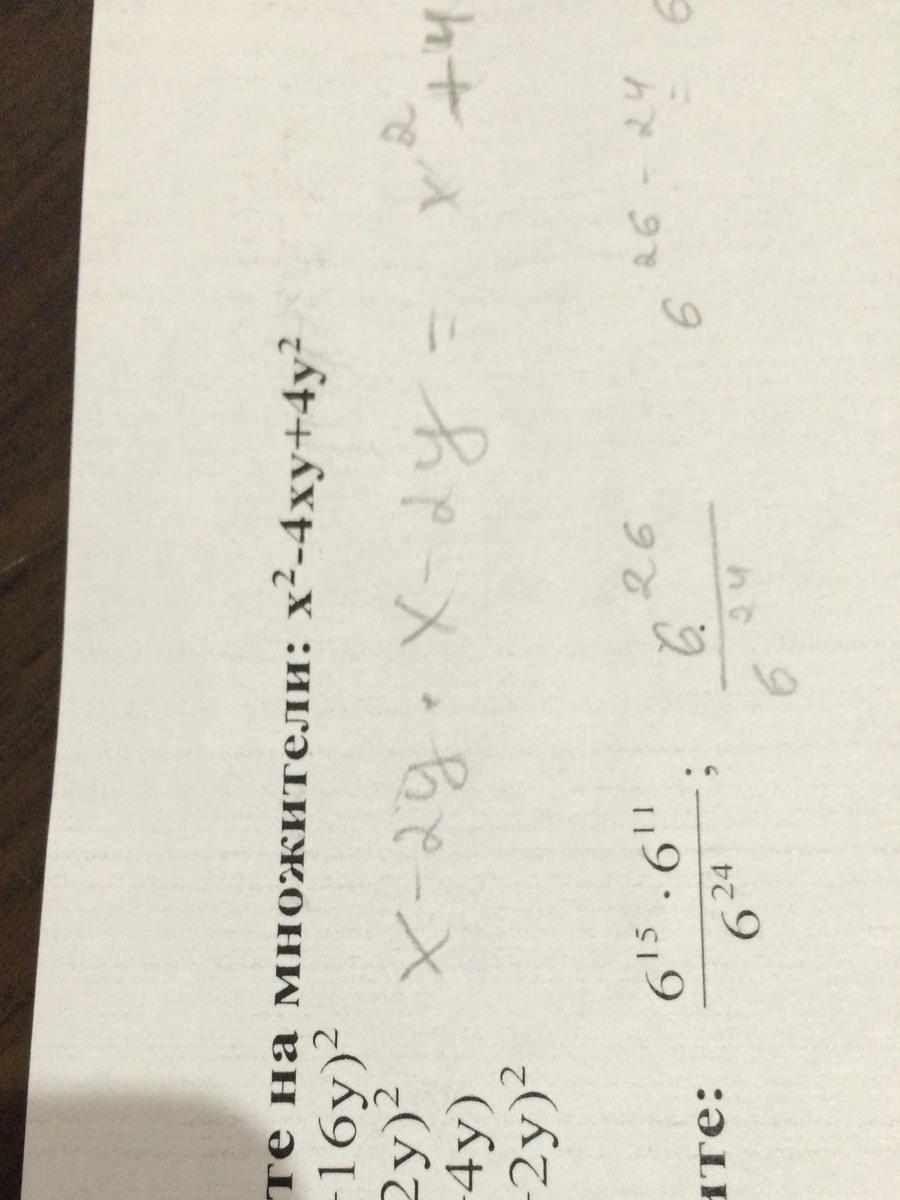 те на множители: x²-4xy+4y²
-16y)²
2y)² x-2y·x-2y= x²+4
-4y)
-2y)²
ите: 6¹⁵·6¹¹/6²⁴; 6²⁶/6²⁴ 6²⁶⁻²⁴= 6